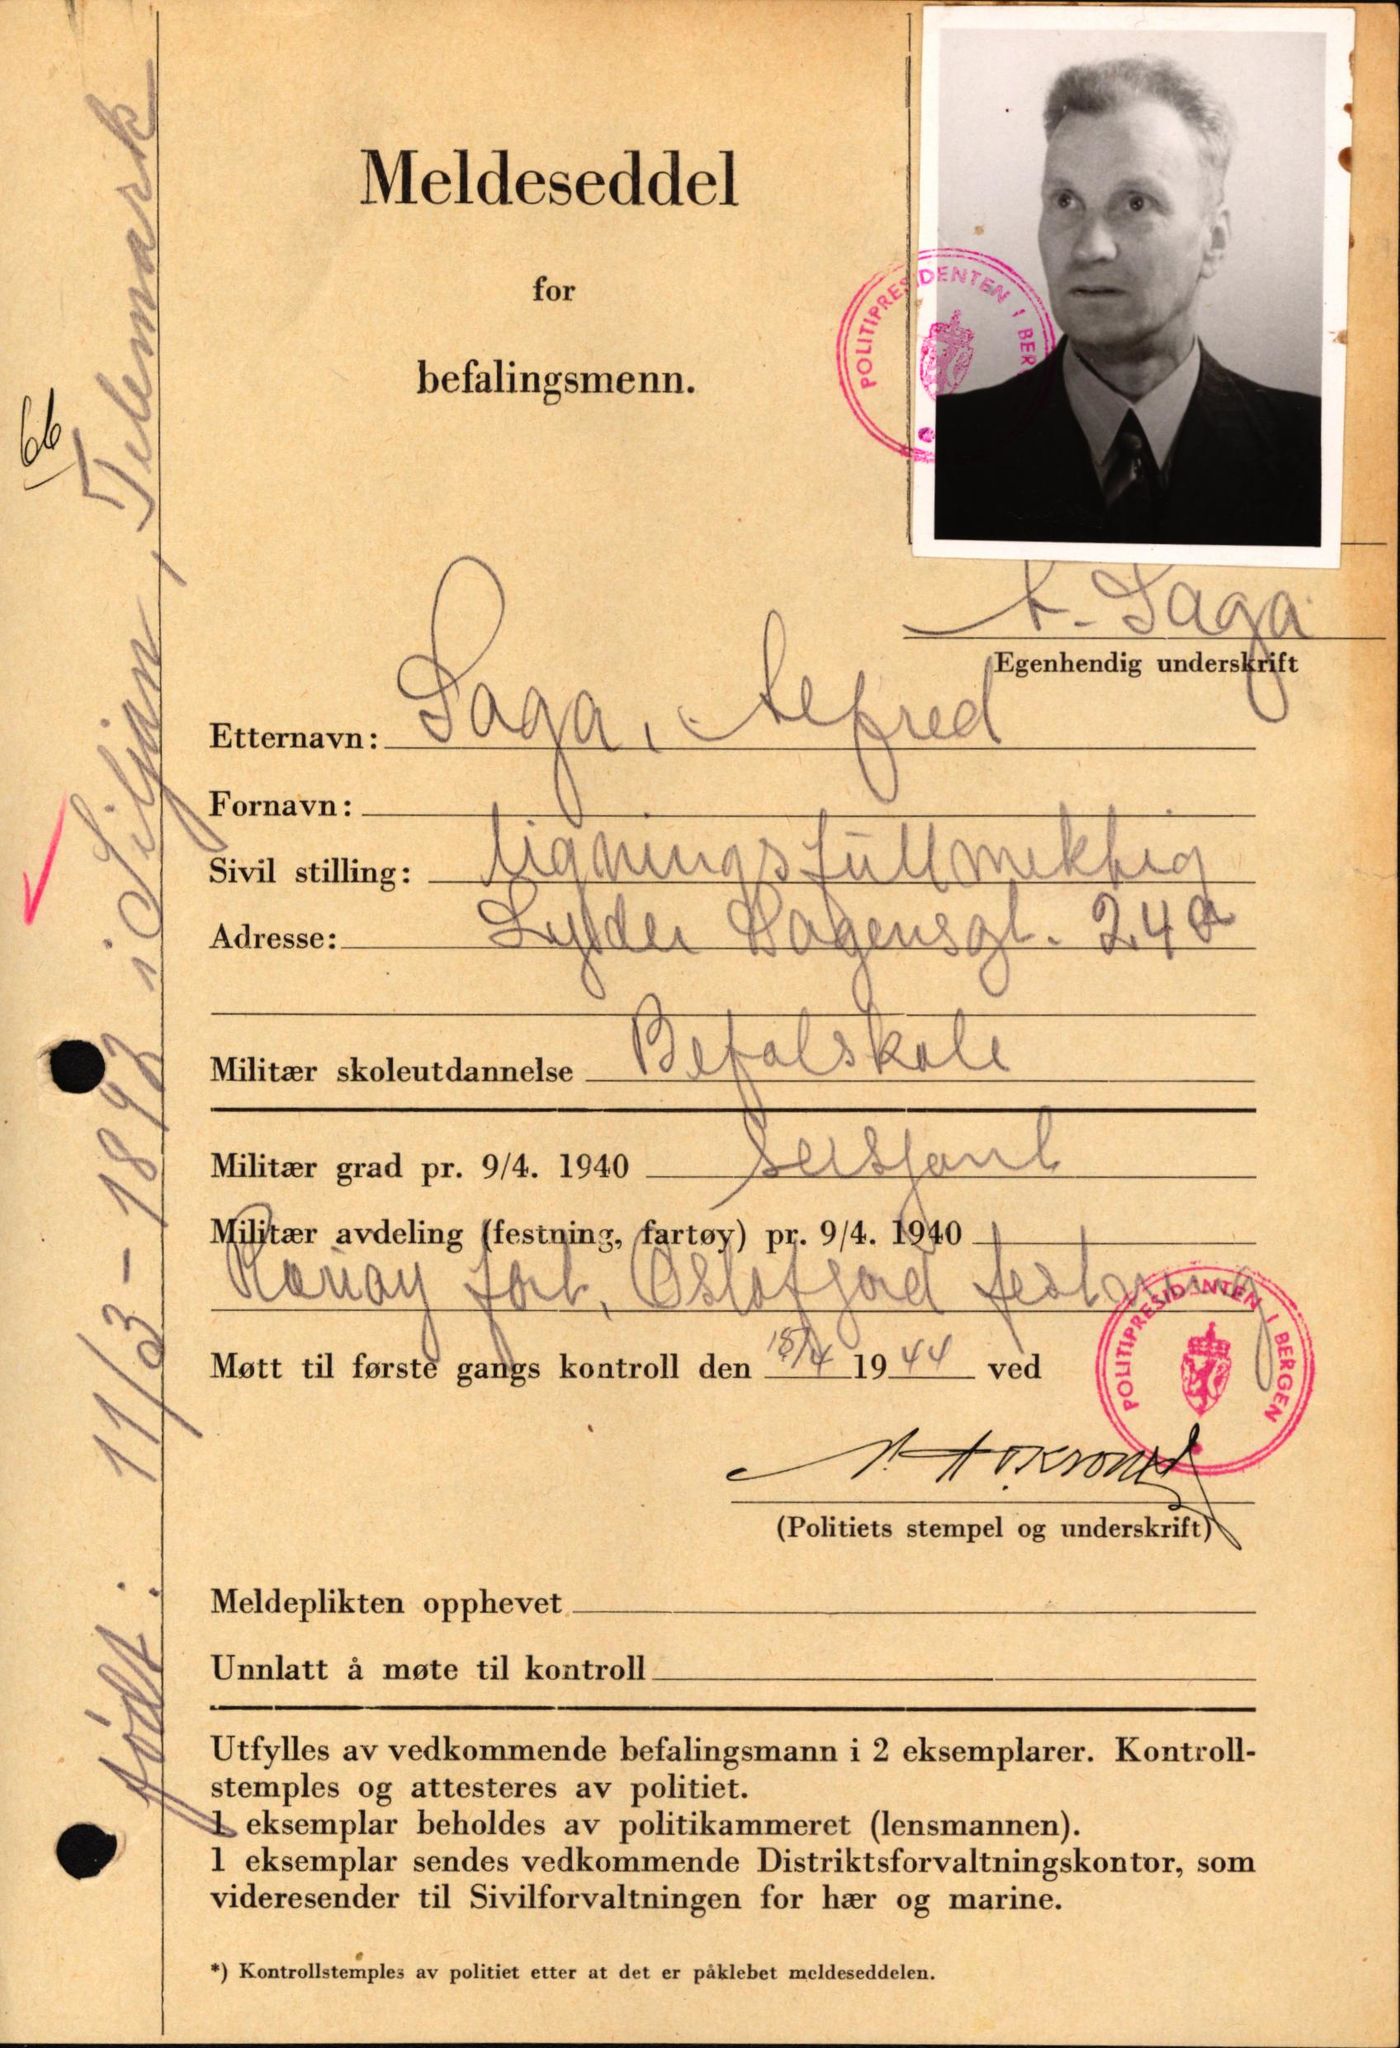 Meldeseddel
for
befalingsmenn.
POLITIPRESIDENTEN I BER
66
A. Saga
Egenhendig underskrift
Etternavn: Saga, Alfred
Fornavn:
Sivil stilling: ligningsfullmektig
Adresse: Lyder Sagensgt. 24a
Militær skoleutdannelse Befalskole
Militær grad pr. 9/4. 1940 Sersjant
Militær avdeling (festning, fartøy) pr. 9/4. 1940
Rauøy fort, Oslofjord festning
Møtt til første gangs kontroll den 18/4 1944 ved
POLITIPRESIDENTEN I BERGEN
(Politiets stempel og underskrift)
Meldeplikten opphevet
Unnlatt å møte til kontroll
Utfylles av vedkommende befalingsmann i 2 eksemplarer. Kontroll-
stemples og attesteres av politiet.
1 eksemplar beholdes av politikammeret (lensmannen).
1 eksemplar sendes vedkommende Distriktsforvaltningskontor, som
videresender til Sivilforvaltningen for hær og marine.
*) Kontrollstemples av politiet etter at det er påklebet meldeseddelen.
født: 11/3-1893 i Siljan, Telemark